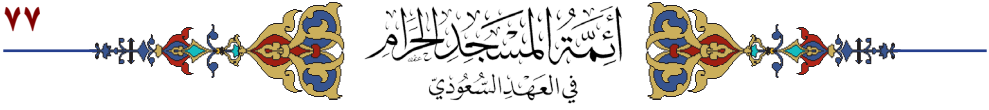 ٧٧
أَئِمَّةُ المَسْجِدِ الحَرَامِ
فِي العَهْدِ السُّعُودِيِّ